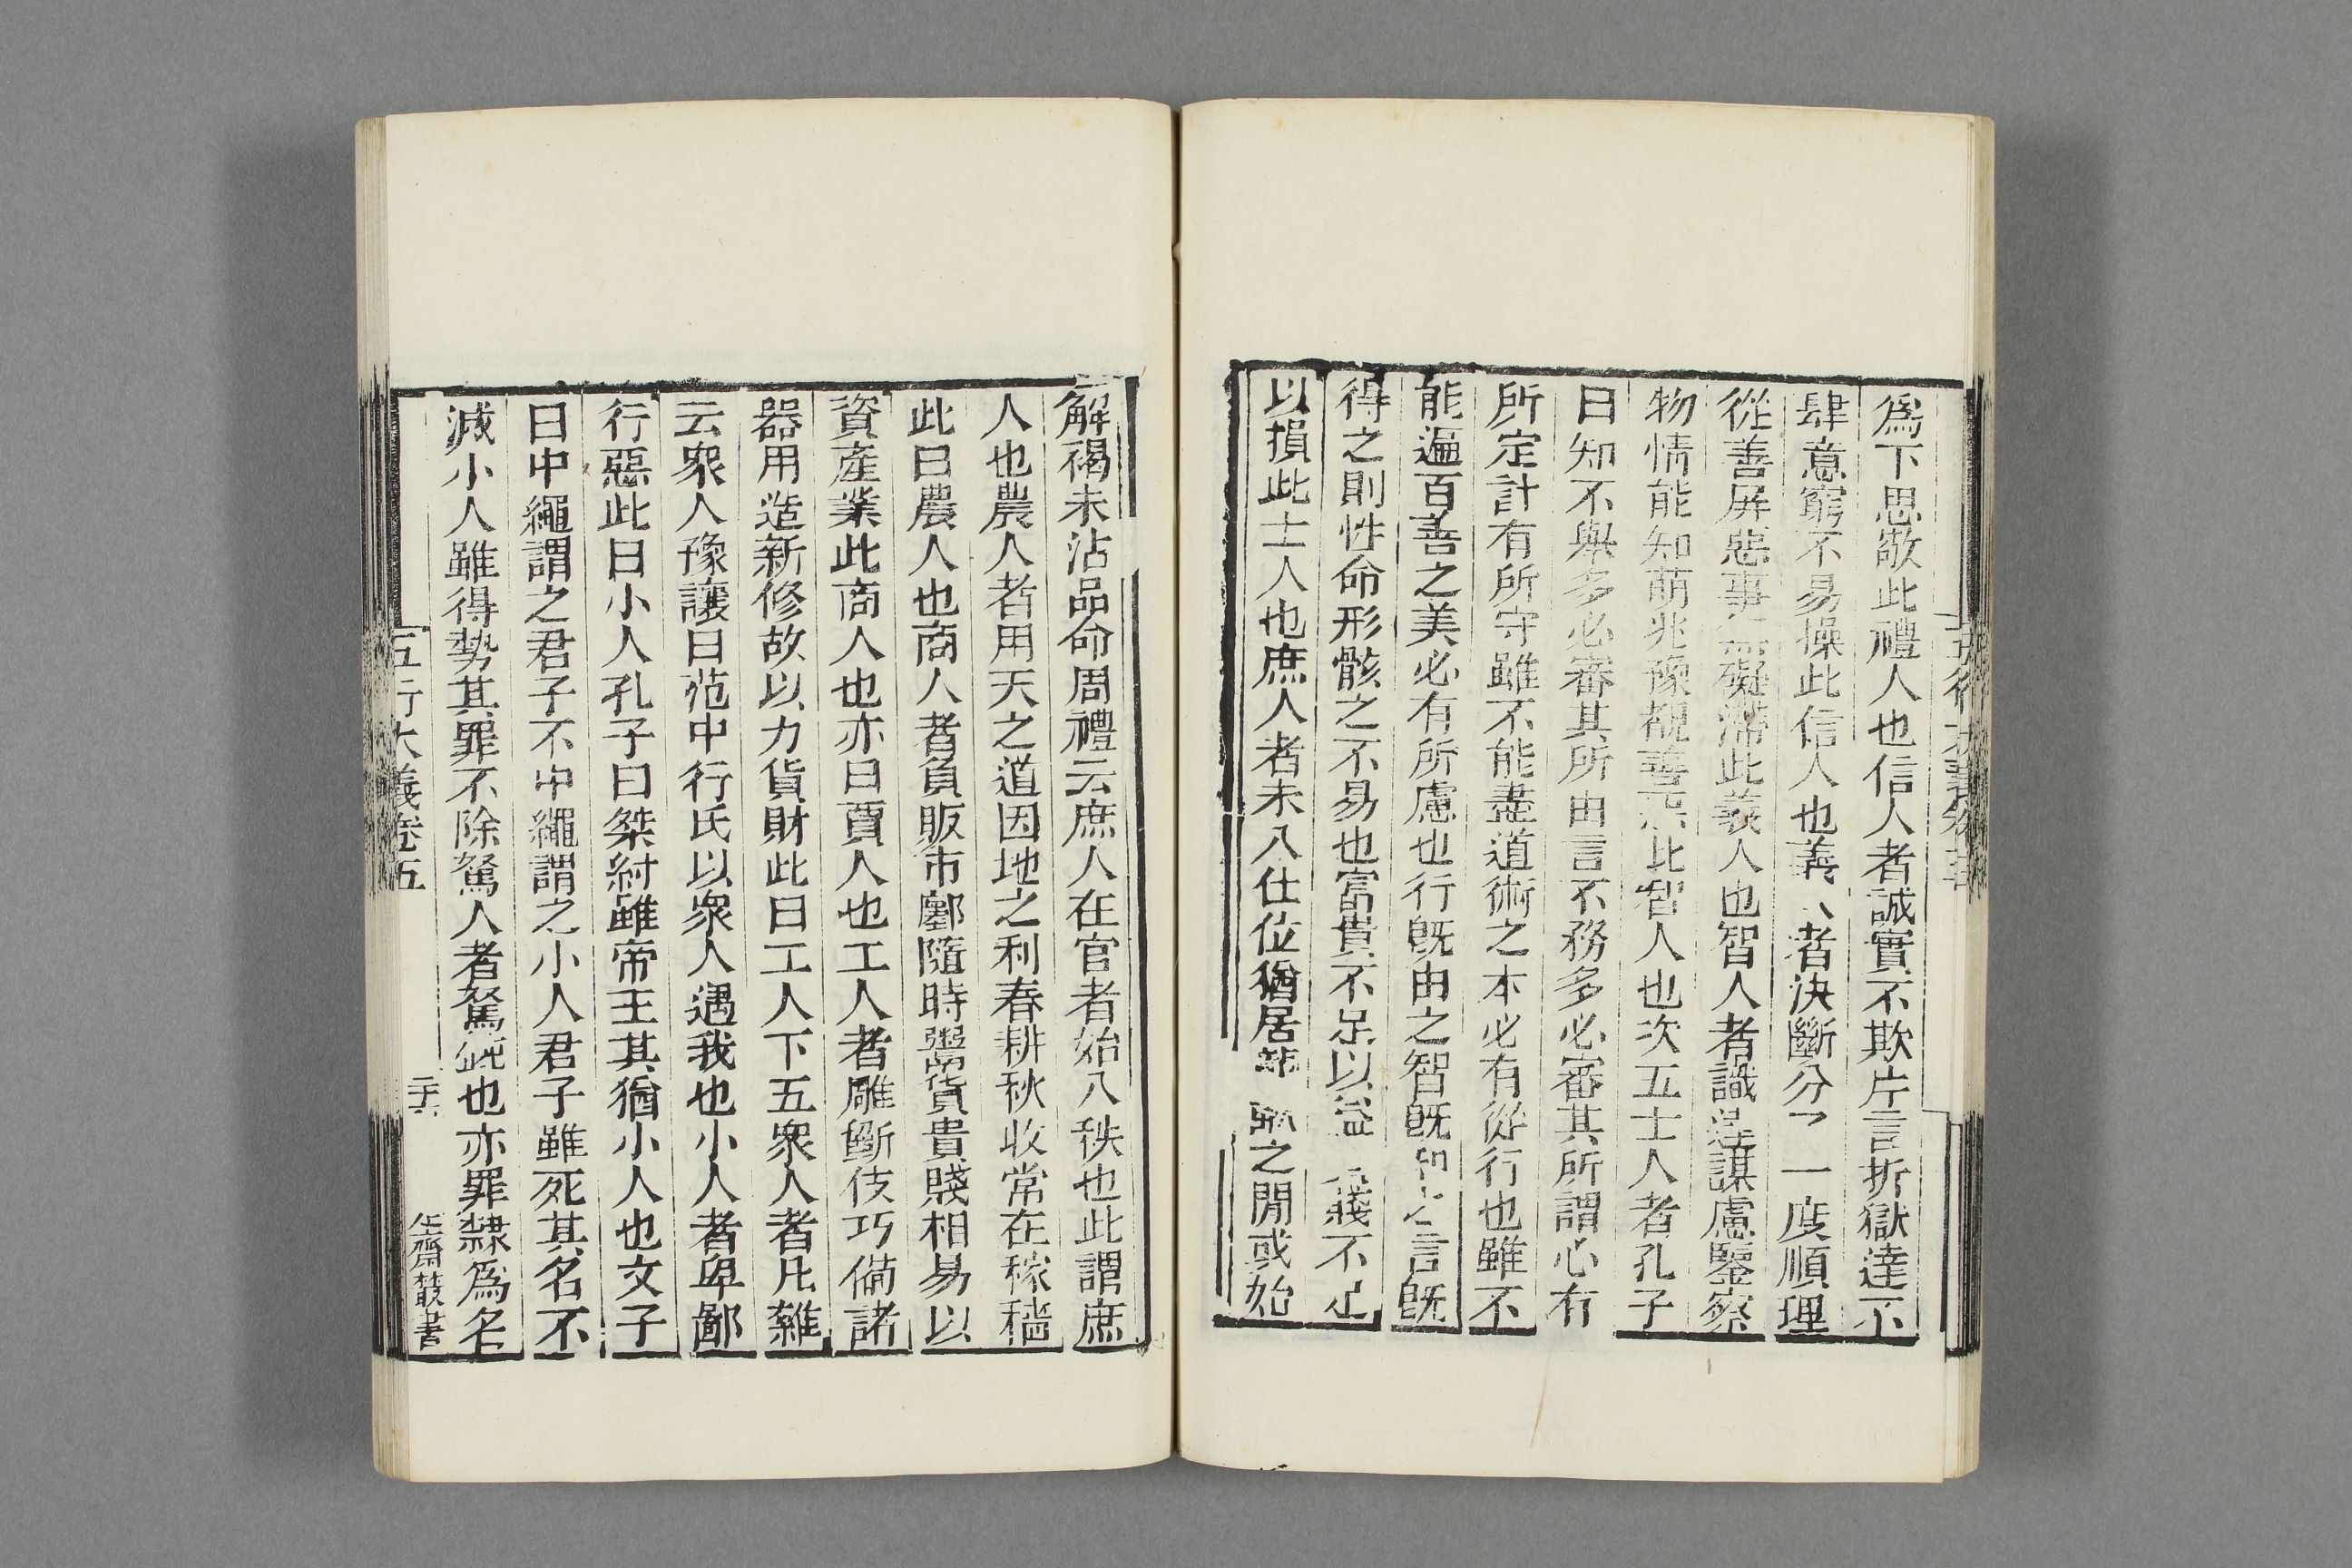 爲下思敬此禮人也信人者誠實不欺片言折獄達不
肆意窮不易操此信人也義人者決斷分了一度順理
從善屏惡事無礙滯此義人也智人者識達謀慮鑒察
物情能知萌兆豫覩善惡此智人也次五士人者孔子
曰知不與多必審其所由言不務多必審其所謂心有
所定計有所守雖不能盡道術之本必有從行也雖不
能遍百善之美必有所慮也行旣由之智旣知之言旣
得之則性命形骸之不易也富貴不足以益 義不足
以損此士人也庶人者未入仕位猶居 之閒或始
解褐未沾品命周禮云庶人在官者始入秩也此謂庶
人也農人者用天之道因地之利春耕秋收常在稼穡
此曰農人也商人者負販市鄽隨時鬻貨貴賤相易以
資產業此商人也亦曰賈人也工人者雕斲伎巧備諸
器用造新修故以力貨財此曰工人下五衆人者凡雜
云衆人豫讓曰范中行氏以衆人遇我也小人者卑鄙
行惡此曰小人孔子曰桀紂雖帝王其猶小人也文子
曰中繩謂之君子不中繩謂之小人君子雖死其名不
滅小人雖得勢其罪不除駑人者駑鈍也亦罪隸爲名
五行大義卷五